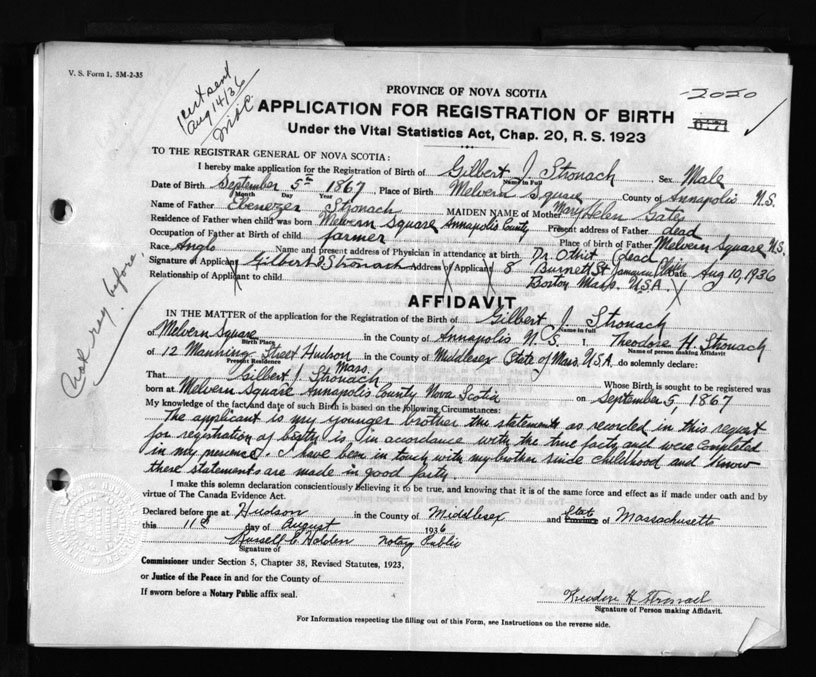 V. S. Form 1. 5M-2-35
Cert sent
Aug 14/36
PROVINCE OF NOVA SCOTIA
2020
APPLICATION FOR REGISTRATION OF BIRTH
Under the Vital Statistics Act, Chap. 20, R. S. 1923
TO THE REGISTRAR GENERAL OF NOVA SCOTIA:
I hereby make application for the Registration of Birth of Gilbert J. Stronach Sex Male
Name in Full
Date of Birth September 5th 1867, Place of Birth Melvern Square County of Annapolis N.S.
Month Day Year
Name of Father Ebenezer Stronach MAIDEN NAME of Mother Mary Helen Gates
Residence of Father when child was born Melvern Square Annapolis County Present address of Father dead
Occupation of Father at Birth of child farmer Place of birth of Father Melvern Square N.S.
Race Anglo Name and present address of Physician in attendance at birth. Dr. dead
Signature of Applicant Gilbert J Stronach Address of Applicant 8 Burnett St Jamaica Plain Date Aug 10, 1936
Relationship of Applicant to child Boston Mass. U.S.A.
Not reg. before
AFFIDAVIT
IN THE MATTER of the application for the Registration of the Birth of Gilbert J. Stronach
Name in Full
of Melvern Square in the County of Annapolis N. S. I, Theodore H. Stronach
Birth Place Name of person making Affidavit
of 12 Manning Street Hudson Mass. in the County of Middlesex State of Mass. U.S.A. do solemnly declare:
Present Residence
That Gilbert J. Stronach Whose Birth is sought to be registered was
born at Melvern Square Annapolis County Nova Scotia on September 5, 1867
My knowledge of the fact and date of such Birth is based on the following Circumstances:
The applicant is my younger brother the statements as recorded in this request
for registration of birth is in accordance with the true facts and were completed
in my presence. I have been in touch with my brother since childhood and know
these statements are made in good
I make this solemn declaration conscientiously believing it to be true, and knowing that it is of the same force and effect as if made under oath and by
virtue of The Canada Evidence Act.
Declared before me at Hudson in the County of Middlesex and State Province of Massachusetts
this 11th day of August 1936
Russell C Holden Notary Public
Signature of
Commissioner under Section 5, Chapter 38, Revised Statutes, 1923,
or Justice of the Peace in and for the County of
If sworn before a Notary Public affix seal.
Theodore H Stronach
Signature of Person making Affidavit.
For Information respecting the filling out of this Form, see Instructions on the reverse side.